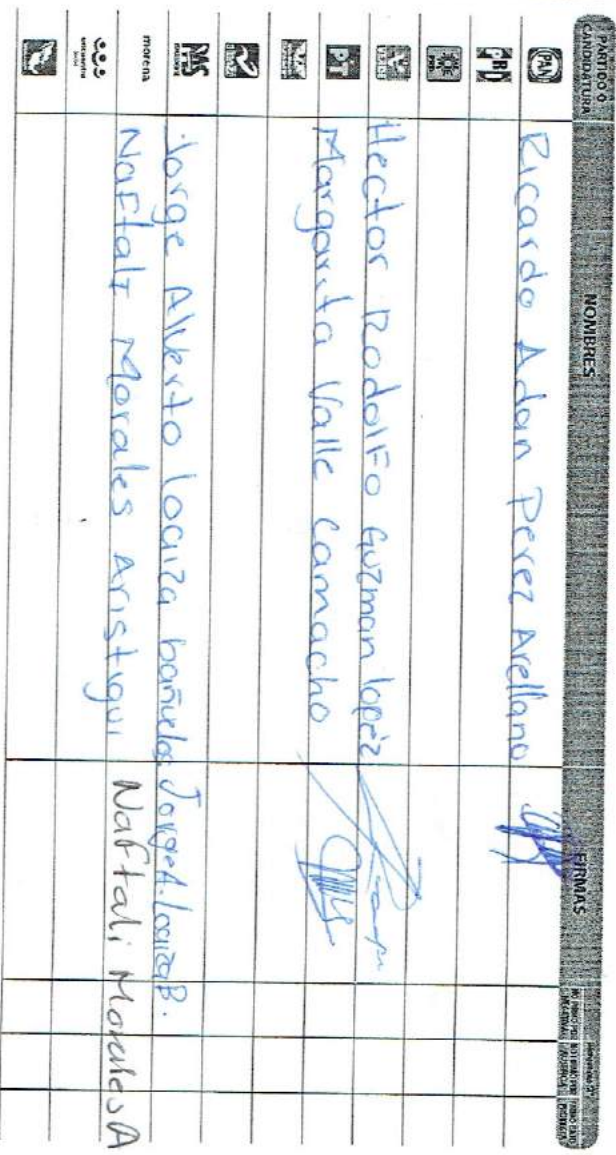 PARTIDO O CANDIDATURA NOMBRES FIRMAS
PAN Ricardo Adan Perez Arellano
PRD
Hector Rodolfo Guzman lopéz
PT Margarita Valle Camacho
PAS Jorge Alverto loaiza bañuelos Jorge A. Loaiza B.
morena Naftali Morales Aristigui Naftali Morales A
encuentro